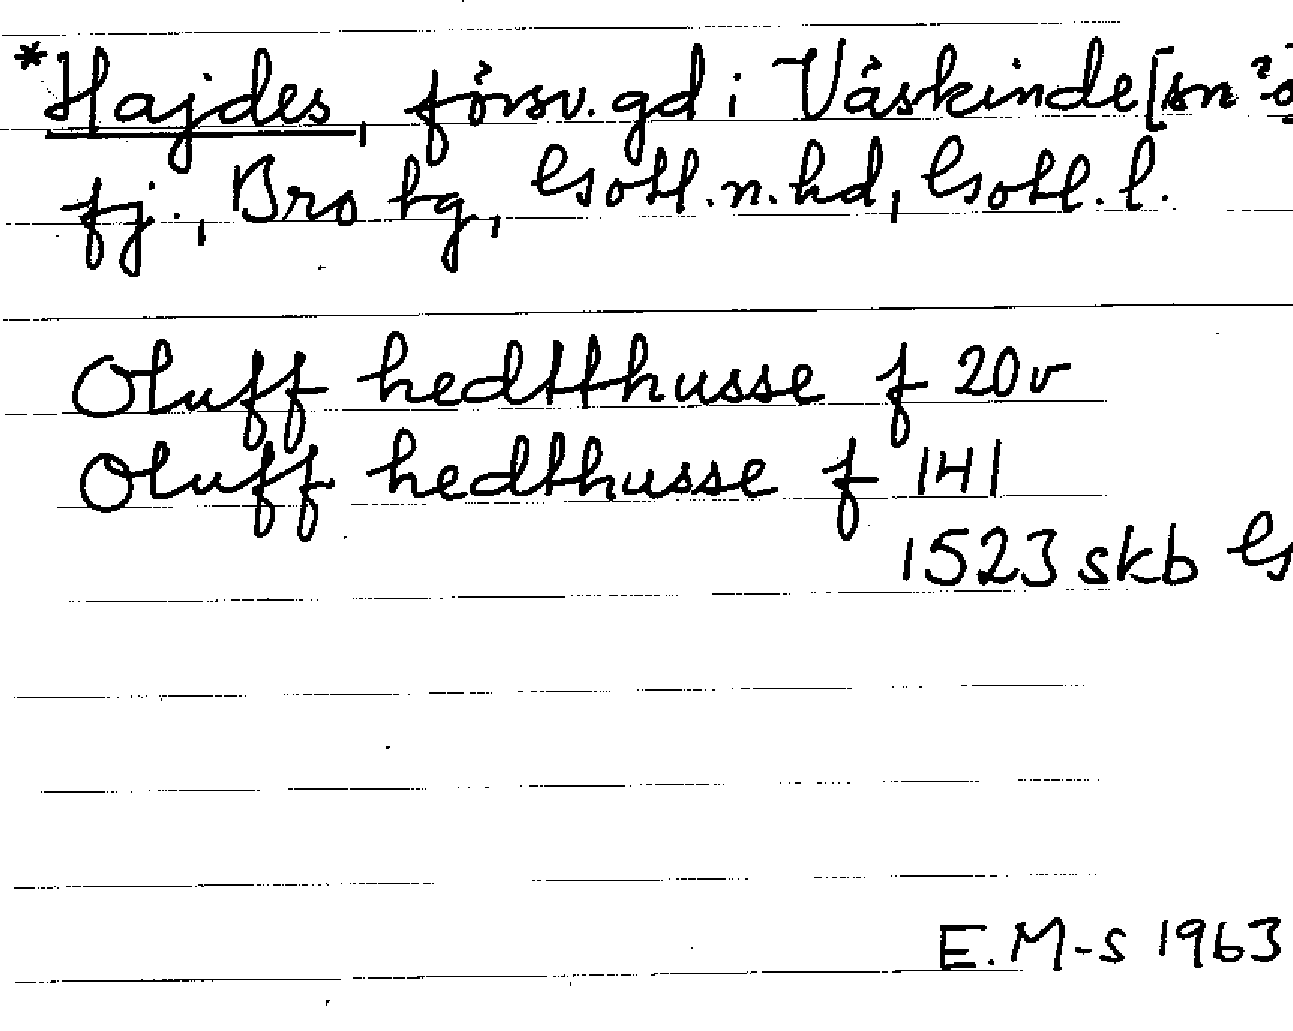 *Hajdes, försv. gd i Väskinde [sn?o]
fj., Bro tg, Gotl. n. hd, Gotl. l.
Oluff hedtthusse f 20v
Oluff hedthusse f 141
1523 skb G
E. M-s 1963